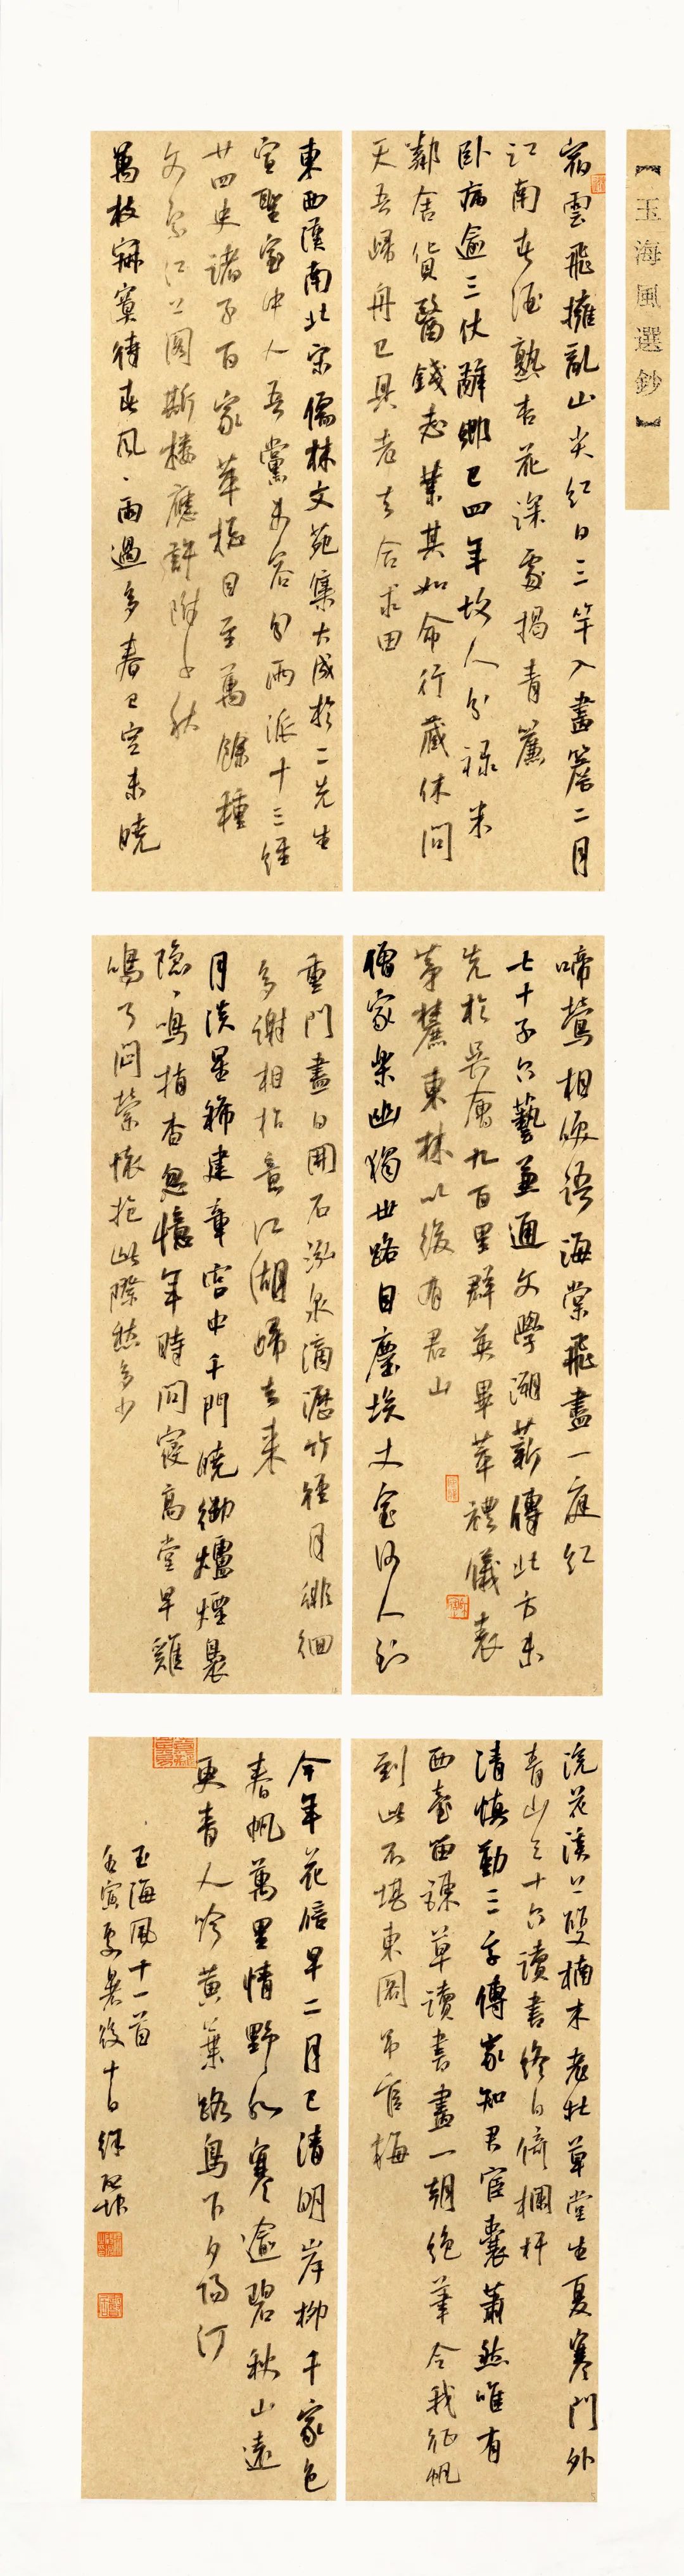 【玉海風選鈔】
宿雲飛擁亂山尖紅日三竿入畫簷二月
江南春酒熟杏花深處揭青簾
卧病逾三伏辭鄉已四年故人分祿米
鄰舍貸醫錢志業其如命行藏休問
天吾歸舟已具老去合求田
東西漢南北宋儒林文苑集大成於二先生
宣聖室中人吾黨未容分兩派十三經
廿四史諸子百家萃總目至萬餘種
文宗江上閣斯樓應許附千秋
萬枝寂寞待春風、雨過多春已空未曉
啼鶯相喚語海棠飛盡一庭紅
七十子六藝兼通文學溯薪傳此方未
先於吳會九百里群英畢萃禮儀表
茅麓東林以後有君山
僧家樂幽獨世路自塵埃丈室何人到
重門盡日開石泓泉滴瀝竹徑月徘徊
多謝相招意江湖歸去來
月淡星稀建章宮中千門曉御爐煙裊
隱、鳴梢杳忽憶年時問寢高堂早雞
鳴了悶縈懷抱此際愁多少
浣花溪上雙楠木老杜草堂生夏寒門外
青山三十六讀書終日倚欄杆
清慎勤三字傳家知君宦囊蕭然唯有
西臺留諫草讀書畫一朝絕筆令我征帆
到此不堪東閣吊官梅
今年花信早二月已清明岸柳千家色
春帆萬里情野水寒逾碧秋山遠
更青人吟黃葉路鳥下夕陽汀
玉海風十一首
壬寅處暑後十日